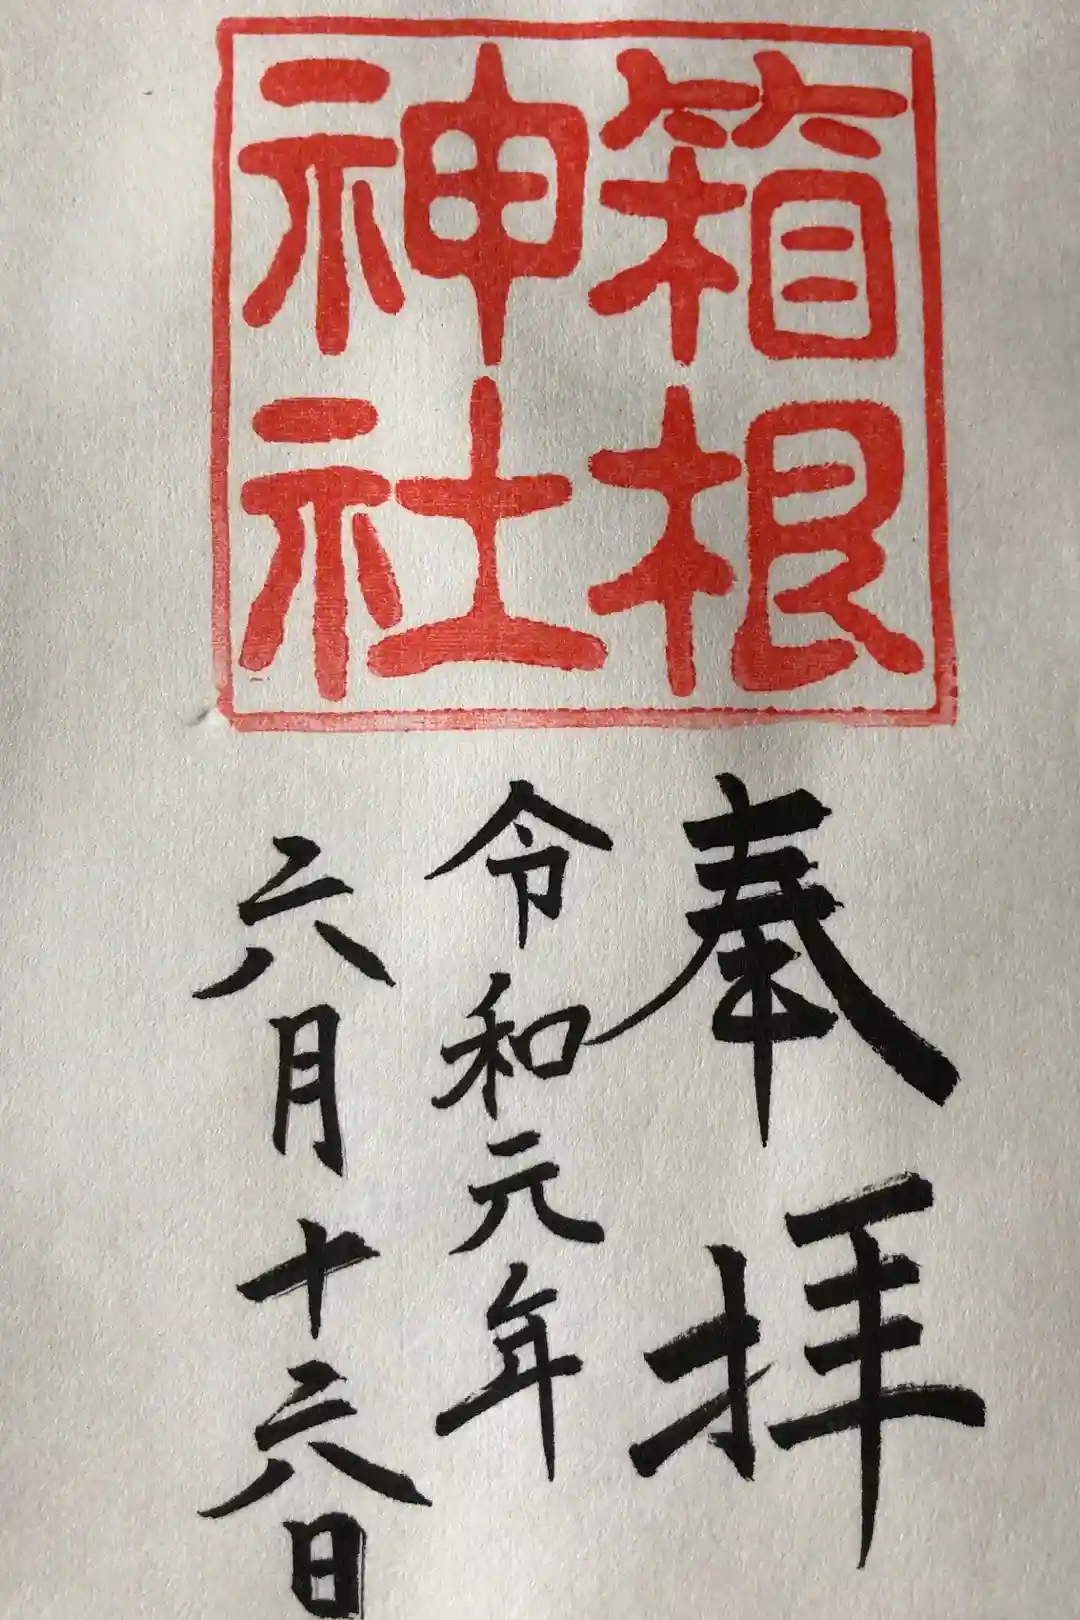 箱根
神社
奉拝
令和元年
六月十六日